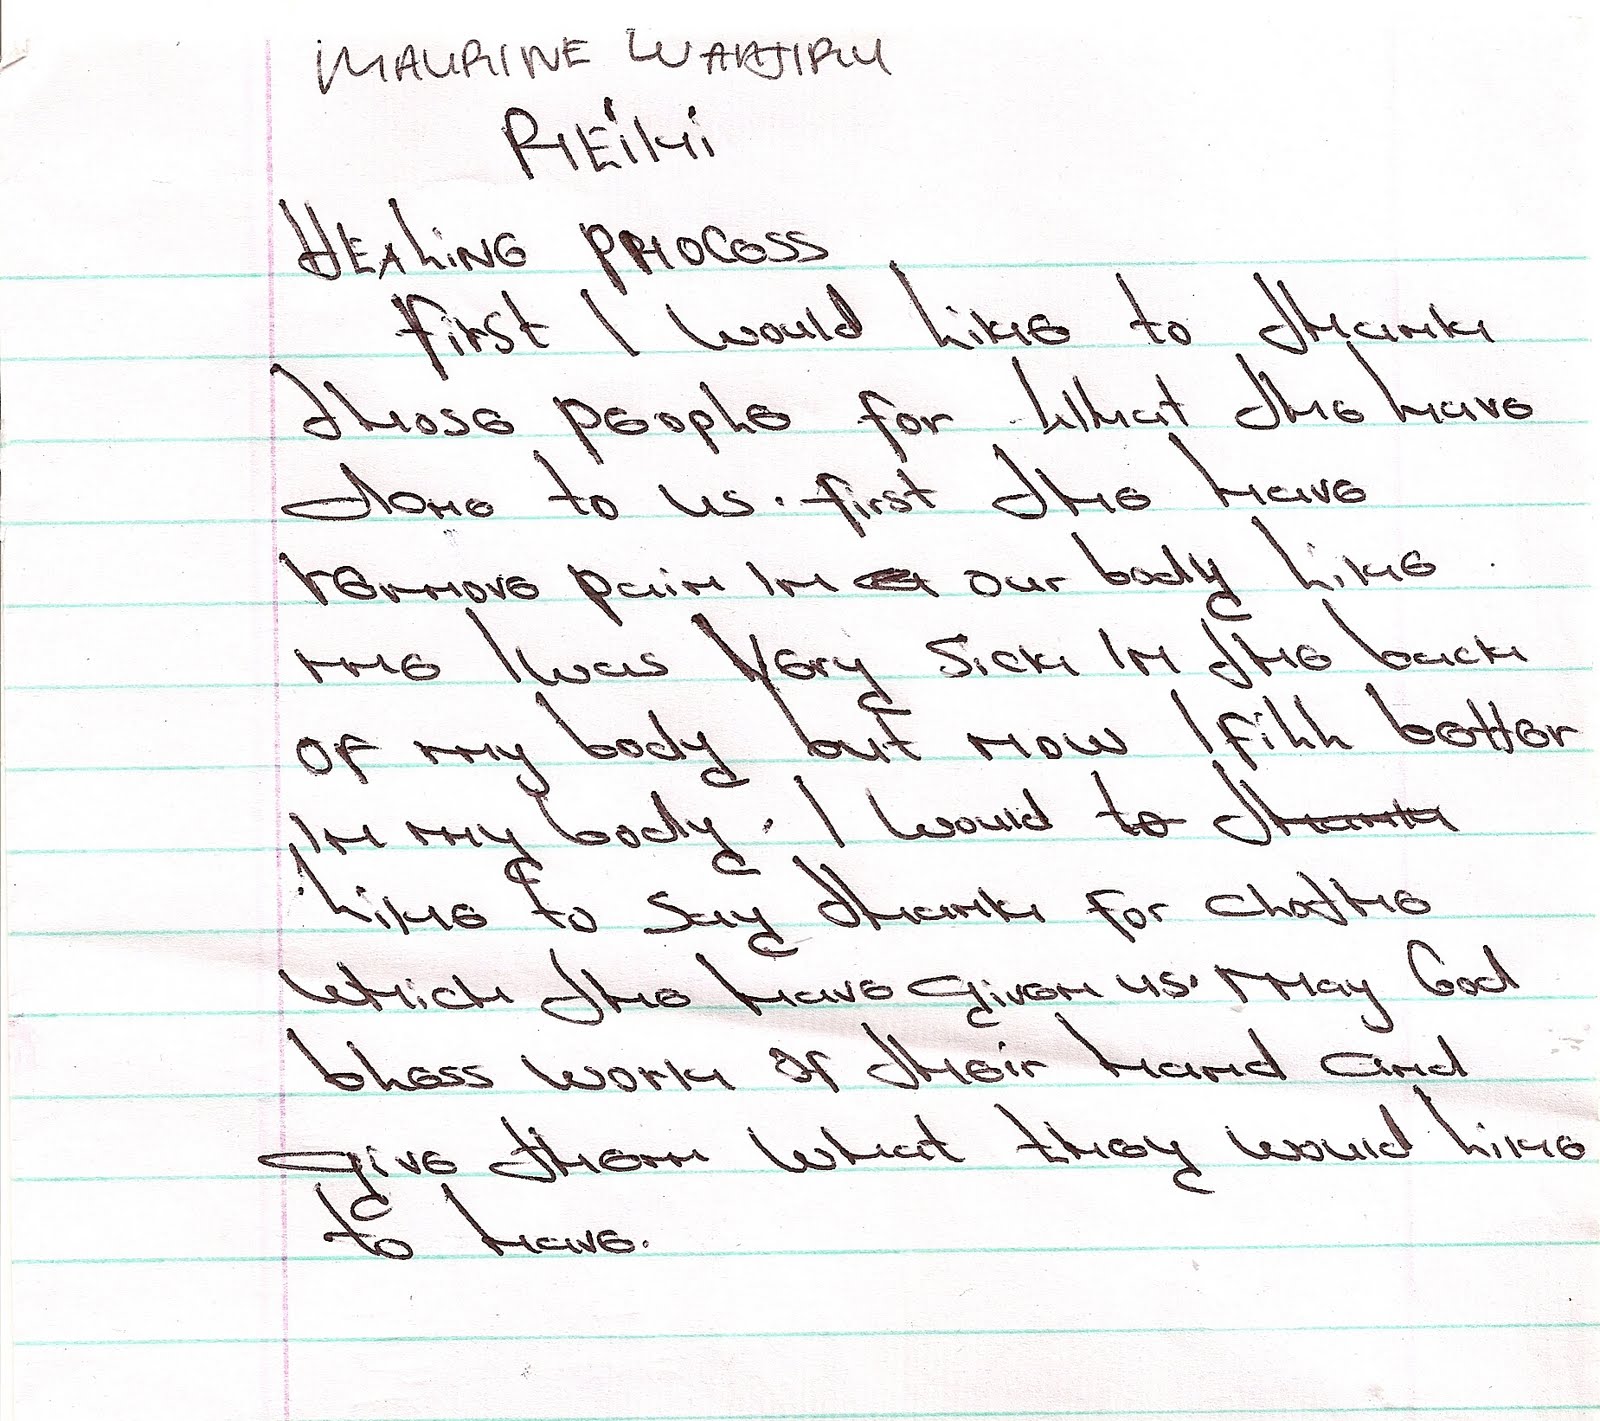 MAURINE WANJIRU
REiki
HEALiNG PROCESS
First I would like to thank
those people for what the have
done to us. first the have
remove pain in our body like
me I was Very sick in the back
of my body but now I fill better
in my body. I would to thank
like to say thank for clothe
which the have given us. may God
bless work of their hand and
give them what they would like
to have.